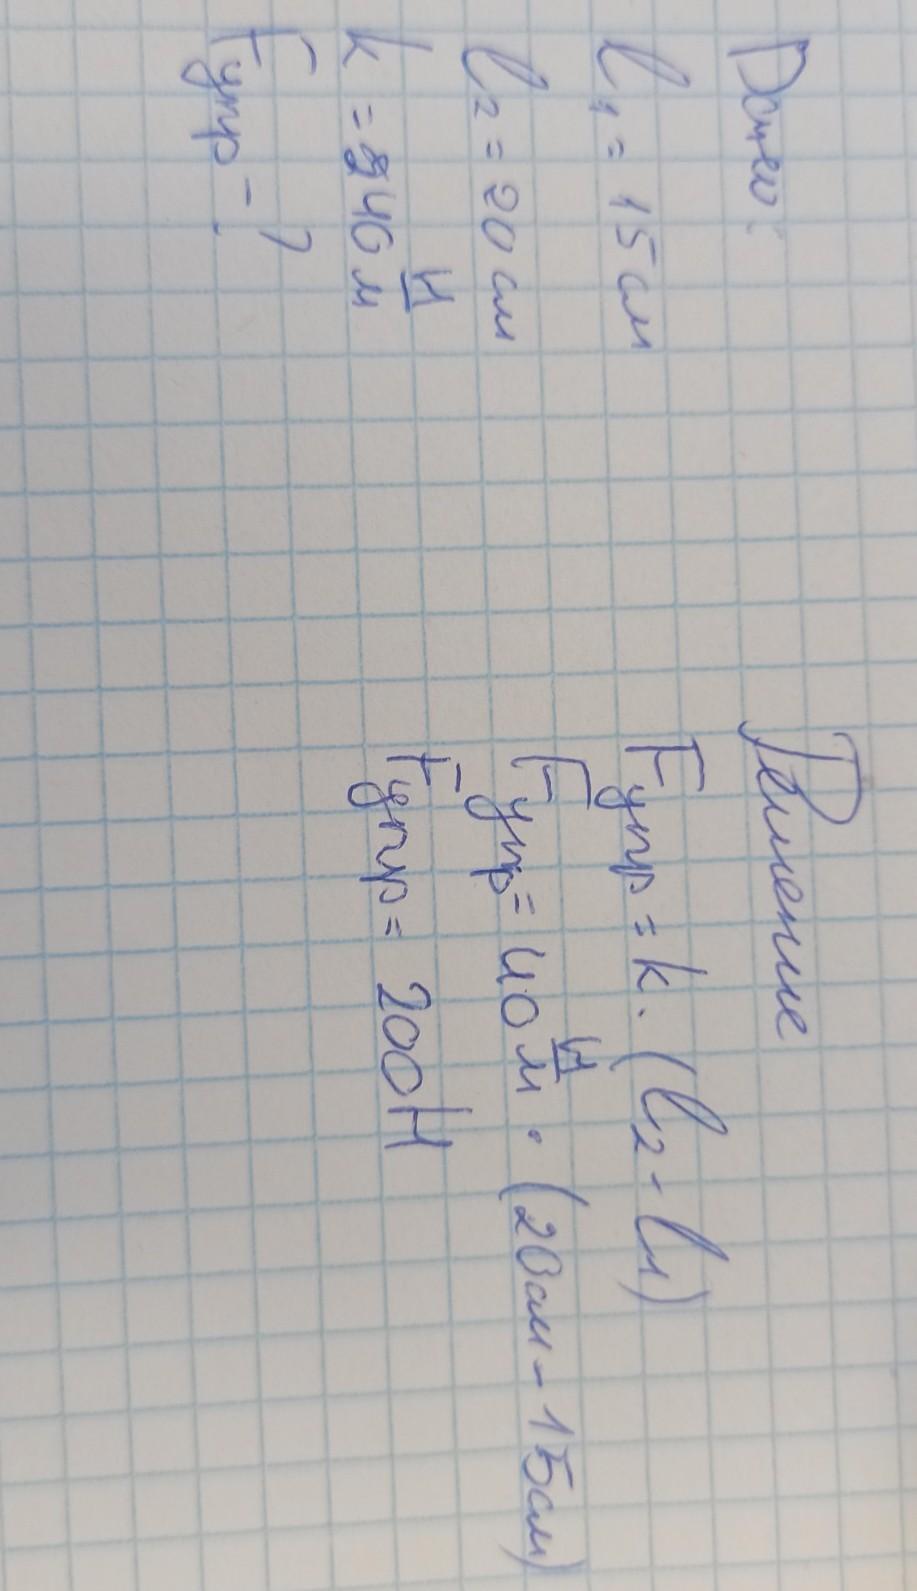 Дано:
l₁ = 15 см
l₂ = 20 см
k = 40 Н/м
Fупр - ?
Решение
Fупр = k · (l₂ - l₁)
Fупр = 40 Н/м · (20см - 15см)
Fупр = 200Н